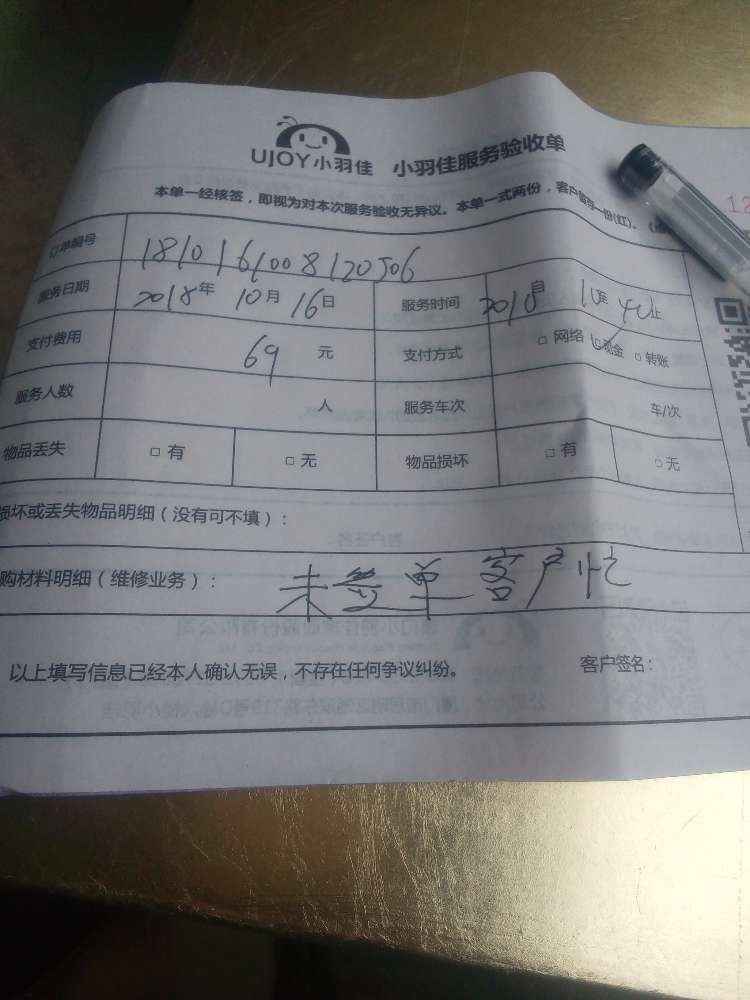 UJOY小羽佳 小羽佳服务验收单
本单一经核签，即视为对本次服务验收无异议。本单一式两份，客户留存一份(红)。
12
订单编号 1810161008120506
服务日期 2018年 10月 16日 服务时间 2018自 10至 40止
支付费用 69 元 支付方式 □ 网络 □ 现金 □ 转账
服务人数 人 服务车次 车/次
物品丢失 □ 有 □ 无 物品损坏 □ 有 □ 无
损坏或丢失物品明细（没有可不填）：
购材料明细（维修业务）： 未签单客户忙
以上填写信息已经本人确认无误，不存在任何争议纠纷。 客户签名：